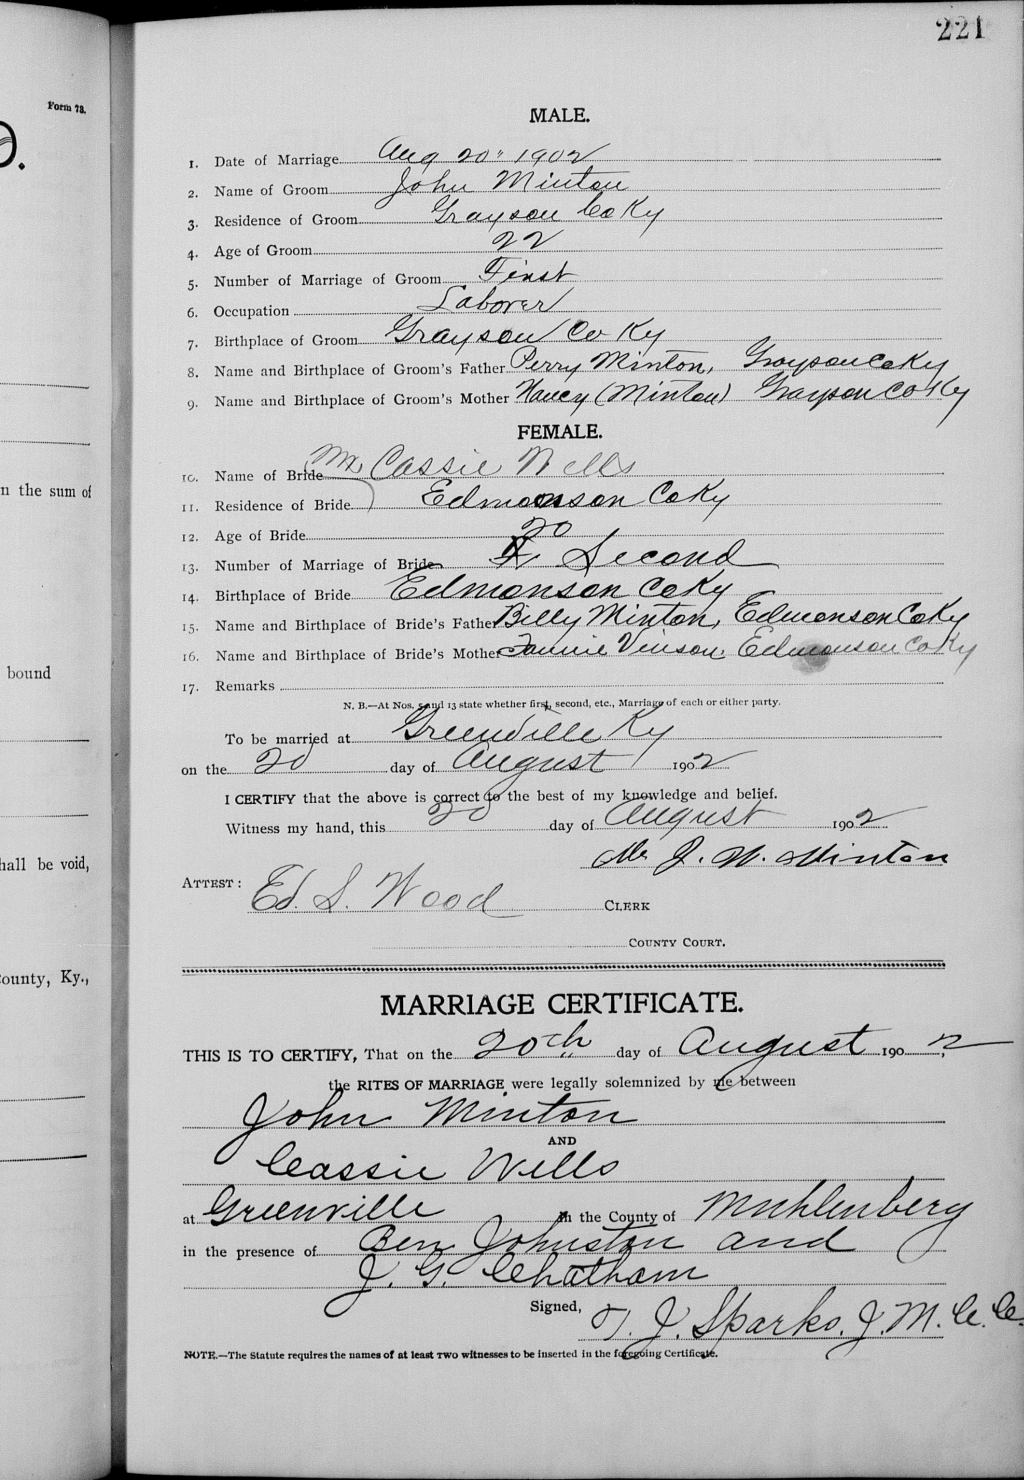 221
Form 73.
O.
MALE.
1. Date of Marriage Aug 20" 1902
2. Name of Groom John Minton
3. Residence of Groom Grayson Co Ky
4. Age of Groom 22
5. Number of Marriage of Groom First
6. Occupation Laborer
7. Birthplace of Groom Grayson Co Ky
8. Name and Birthplace of Groom's Father Perry Minton, Grayson Co Ky
9. Name and Birthplace of Groom's Mother Nancy (Minton) Grayson Co Ky
FEMALE.
10. Name of Bride Cassie Wells
n the sum of
11. Residence of Bride Edmonson Co Ky
12. Age of Bride 20
13. Number of Marriage of Bride Second
14. Birthplace of Bride Edmonson Co Ky
15. Name and Birthplace of Bride's Father Billy Minton, Edmonson Co Ky
16. Name and Birthplace of Bride's Mother Fannie Vinson, Edmonson Co Ky
bound
17. Remarks
N. B.—At Nos. 5 and 13 state whether first, second, etc., Marriage of each or either party.
To be married at Greenville Ky
on the 20 day of August 1902
I CERTIFY that the above is correct to the best of my knowledge and belief.
Witness my hand, this 20 day of August 1902
J. W. Minton
hall be void,
ATTEST: Ed. S. Wood CLERK
COUNTY COURT.
County, Ky.,
MARRIAGE CERTIFICATE.
THIS IS TO CERTIFY, That on the 20th day of August 1902,
the RITES OF MARRIAGE were legally solemnized by me between
John Minton
AND
Cassie Wells
at Greenville in the County of Muhlenberg
in the presence of Ben Johnston and
J. G. Chatham
Signed, T. J. Sparks, J. M. C. C.
NOTE.—The Statute requires the names of at least two witnesses to be inserted in the foregoing Certificate.